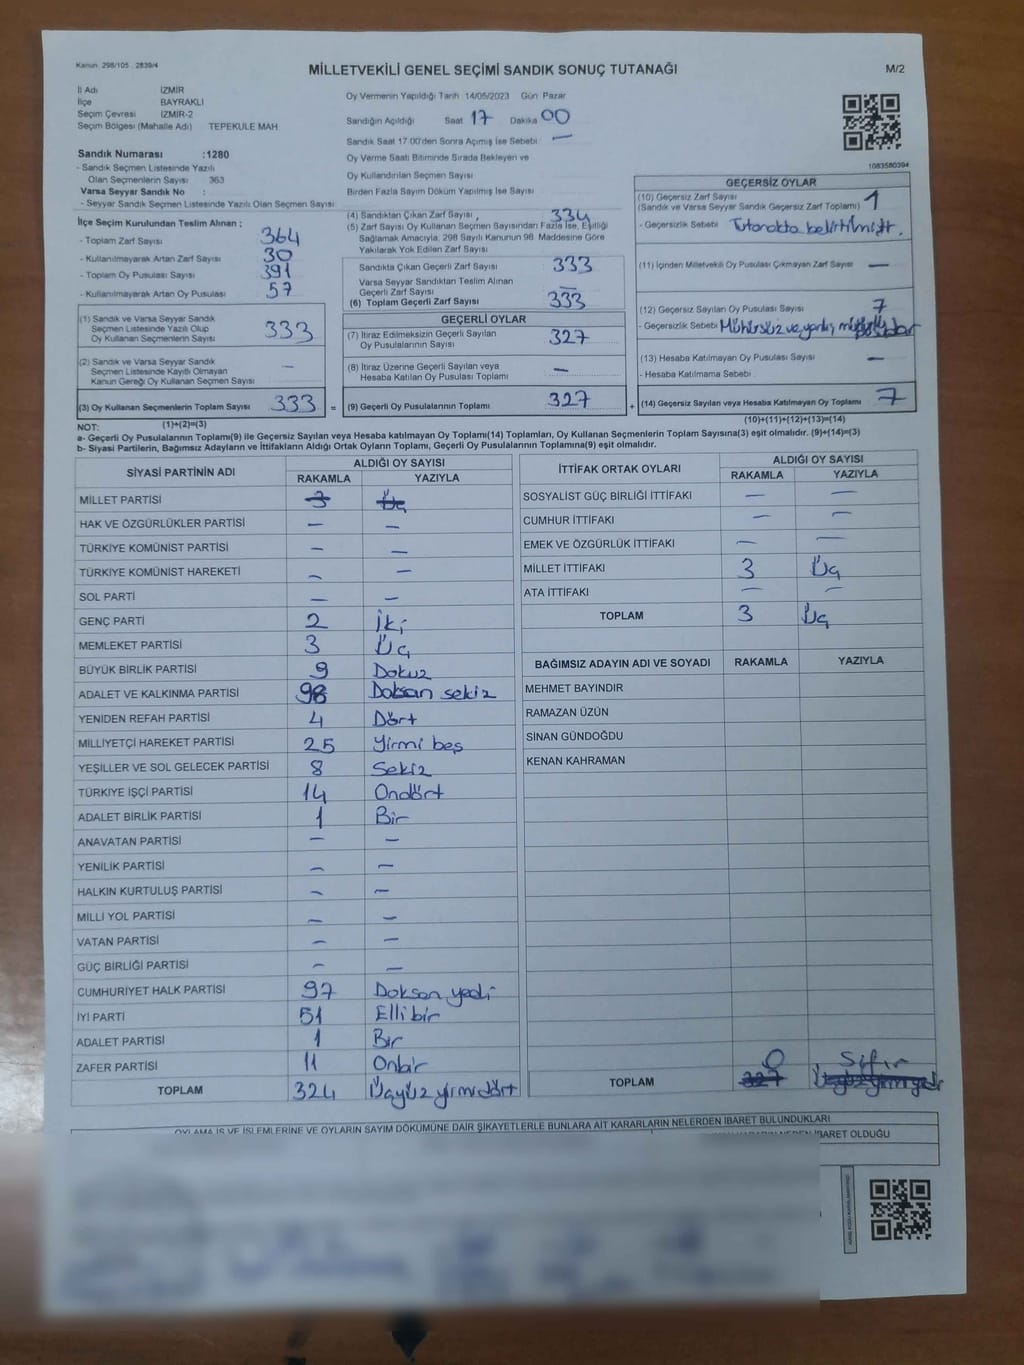 Kanun 298/105 2839/4
MİLLETVEKİLİ GENEL SEÇİMİ SANDIK SONUÇ TUTANAĞI
M/2
İl Adı İZMİR
İlçe BAYRAKLI
Seçim Çevresi İZMİR-2
Seçim Bölgesi (Mahalle Adı) TEPEKULE MAH
Sandık Numarası :1280
- Sandık Seçmen Listesinde Yazılı
Olan Seçmenlerin Sayısı 363
Varsa Seyyar Sandık No :
- Seyyar Sandık Seçmen Listesinde Yazılı Olan Seçmen Sayısı
Oy Vermenin Yapıldığı Tarih 14/05/2023 Gün Pazar
Sandığın Açıldığı Saat 17 Dakika 00
Sandık Saat 17.00'den Sonra Açımış İse Sebebi: —
Oy Verme Saati Bitiminde Sırada Bekleyen ve
Oy Kullandırılan Seçmen Sayısı
Birden Fazla Sayım Döküm Yapılmış İse Sayısı
1083580394
İlçe Seçim Kurulundan Teslim Alınan :
- Toplam Zarf Sayısı 364
- Kullanılmayarak Artan Zarf Sayısı 30
- Toplam Oy Pusulası Sayısı 391
- Kullanılmayarak Artan Oy Pusulası 57
(1) Sandık ve Varsa Seyyar Sandık
Seçmen Listesinde Yazılı Olup
Oy Kullanan Seçmenlerin Sayısı 333
(2) Sandık ve Varsa Seyyar Sandık
Seçmen Listesinde Kayıtlı Olmayan
Kanun Gereği Oy Kullanan Seçmen Sayısı —
(3) Oy Kullanan Seçmenlerin Toplam Sayısı 333 =
(1)+(2)=(3)
(4) Sandıktan Çıkan Zarf Sayısı 334
(5) Zarf Sayısı Oy Kullanan Seçmen Sayısından Fazla İse, Eşitliği
Sağlamak Amacıyla, 298 Sayılı Kanunun 98. Maddesine Göre
Yakılarak Yok Edilen Zarf Sayısı
Sandıkta Çıkan Geçerli Zarf Sayısı 333
Varsa Seyyar Sandıktan Teslim Alınan
Geçerli Zarf Sayısı —
(6) Toplam Geçerli Zarf Sayısı 333
GEÇERLİ OYLAR
(7) İtiraz Edilmeksizin Geçerli Sayılan
Oy Pusulalarının Sayısı 327
(8) İtiraz Üzerine Geçerli Sayılan veya
Hesaba Katılan Oy Pusulası Toplamı —
(9) Geçerli Oy Pusulalarının Toplamı 327 +
GEÇERSİZ OYLAR
(10) Geçersiz Zarf Sayısı
(Sandık ve Varsa Seyyar Sandık Geçersiz Zarf Toplamı) 1
- Geçersizlik Sebebi Tutanakta belirtilmiştir.
(11) İçinden Milletvekili Oy Pusulası Çıkmayan Zarf Sayısı —
(12) Geçersiz Sayılan Oy Pusulası Sayısı 7
- Geçersizlik Sebebi Mühürsüz ve yanlış
(13) Hesaba Katılmayan Oy Pusulası Sayısı —
- Hesaba Katılmama Sebebi
(14) Geçersiz Sayılan veya Hesaba Katılmayan Oy Toplamı 7
(10)+(11)+(12)+(13)=(14)
NOT:
a- Geçerli Oy Pusulalarının Toplamı(9) ile Geçersiz Sayılan veya Hesaba katılmayan Oy Toplamı(14) Toplamları, Oy Kullanan Seçmenlerin Toplam Sayısına(3) eşit olmalıdır. (9)+(14)=(3)
b- Siyasi Partilerin, Bağımsız Adayların ve İttifakların Aldığı Ortak Oyların Toplamı, Geçerli Oy Pusulalarının Toplamına(9) eşit olmalıdır.
SİYASİ PARTİNİN ADI ALDIĞI OY SAYISI
RAKAMLA YAZIYLA
MİLLET PARTİSİ 3 Üç
HAK VE ÖZGÜRLÜKLER PARTİSİ — —
TÜRKİYE KOMÜNİST PARTİSİ — —
TÜRKİYE KOMÜNİST HAREKETİ — —
SOL PARTİ — —
GENÇ PARTİ 2 İki
MEMLEKET PARTİSİ 3 Üç
BÜYÜK BİRLİK PARTİSİ 9 Dokuz
ADALET VE KALKINMA PARTİSİ 98 Doksan sekiz
YENİDEN REFAH PARTİSİ 4 Dört
MİLLİYETÇİ HAREKET PARTİSİ 25 Yirmi beş
YEŞİLLER VE SOL GELECEK PARTİSİ 8 Sekiz
TÜRKİYE İŞÇİ PARTİSİ 14 Ondört
ADALET BİRLİK PARTİSİ 1 Bir
ANAVATAN PARTİSİ — —
YENİLİK PARTİSİ — —
HALKIN KURTULUŞ PARTİSİ — —
MİLLİ YOL PARTİSİ — —
VATAN PARTİSİ — —
GÜÇ BİRLİĞİ PARTİSİ — —
CUMHURİYET HALK PARTİSİ 97 Doksan yedi
İYİ PARTİ 51 Elli bir
ADALET PARTİSİ 1 Bir
ZAFER PARTİSİ 11 Onbir
TOPLAM 324 Üçyüz yirmi dört
İTTİFAK ORTAK OYLARI ALDIĞI OY SAYISI
RAKAMLA YAZIYLA
SOSYALİST GÜÇ BİRLİĞİ İTTİFAKI — —
CUMHUR İTTİFAKI — —
EMEK VE ÖZGÜRLÜK İTTİFAKI — —
MİLLET İTTİFAKI 3 Üç
ATA İTTİFAKI — —
TOPLAM 3 Üç
BAĞIMSIZ ADAYIN ADI VE SOYADI RAKAMLA YAZIYLA
MEHMET BAYINDIR
RAMAZAN ÜZÜN
SİNAN GÜNDOĞDU
KENAN KAHRAMAN
0 Sıfır
TOPLAM 327 Üçyüz yirmi yedi
OYLAMA İŞ VE İŞLEMLERİNE VE OYLARIN SAYIM DÖKÜMÜNE DAİR ŞİKAYETLERLE BUNLARA AİT KARARLARIN NELERDEN İBARET BULUNDUKLARI
İBARET OLDUĞU